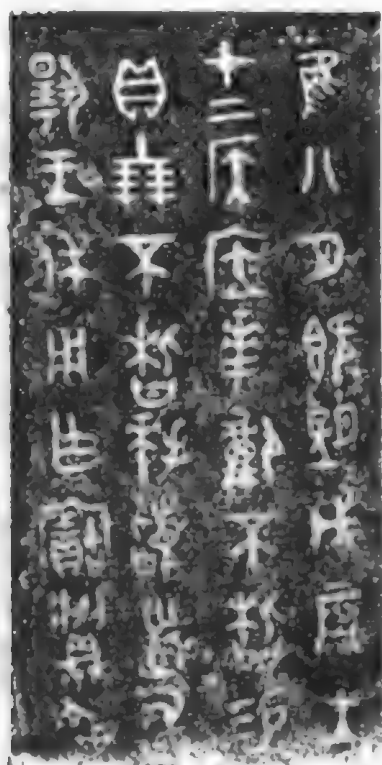 隹八月既望戊辰王
才上侯应𠦪祼不栺易
貝十朋不栺拜𩒨首敢
揚王休用乍寶𩰬彝